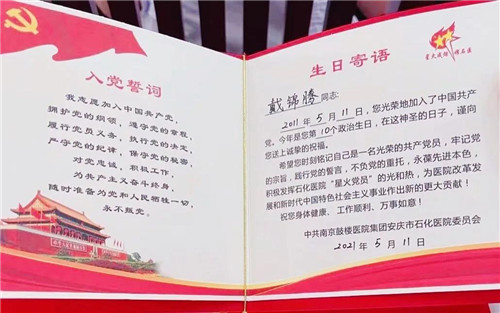 入党誓词
我志愿加入中国共产党,
拥护党的纲领,遵守党的章程,
履行党员义务,执行党的决定,
严守党的纪律,保守党的秘密,
对党忠诚,积极工作,
为共产主义奋斗终身,
随时准备为党和人民牺牲一切,
永不叛党。
生日寄语
戴锦腾 同志:
2011 年 5 月 11 日,您光荣地加入了中国共产
党。今年是您第 10 个政治生日,在这神圣的日子,谨向
您送上诚挚的祝福。
希望您时刻铭记自己是一名光荣的共产党员,牢记党
的宗旨,践行党的誓言,不负党的重托,永葆先进本色,
积极发挥石化医院“星火党员”的光和热,为医院改革发
展和新时代中国特色社会主义事业作出新的更大贡献!
祝您身体健康、工作顺利、万事如意!
中共南京鼓楼医院集团安庆市石化医院委员会
2021 年 5 月 11 日